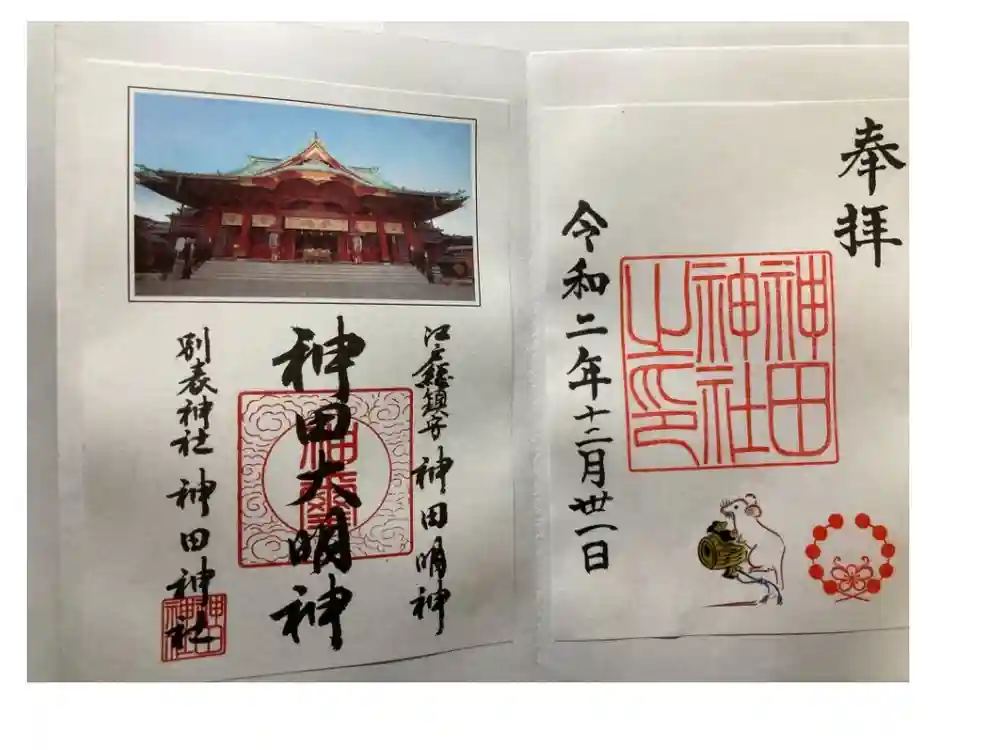 奉拝
神田
神社
之印
令和二年十二月丗一日
江戸總鎮守 神田明神
神田大明神
別表神社 神田神社
神田
神社